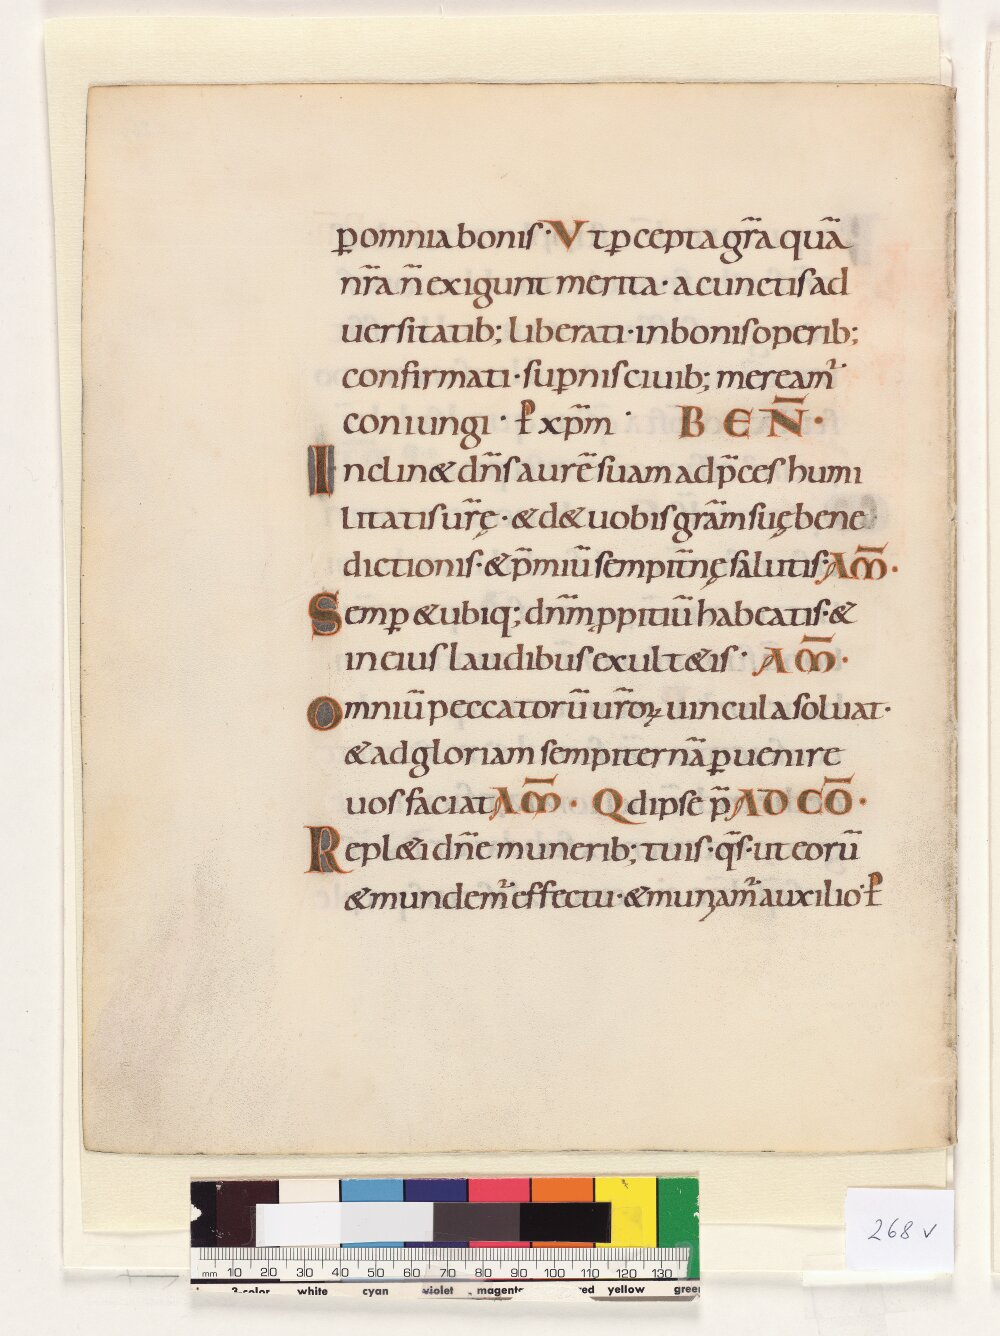 p̱ omnia bonis · Vt p̱cepta gr̃a quã
nr̃a ñ exigunt merita · a cunctis ad
uersitatib; liberati · in bonis operib;
confirmati · sup̱nis ciuib; meream̃
coniungi · ꝑ xp̃m · BEÑ ·
Inclin& dñs aurẽ suam ad p̃ces humi
litatis ur̃ę · & d& uobis gr̃am suę bene
dictionis · & p̃miũ sempit̃nę salutis · AM̃ ·
Semp̱ & ubiq; dñm ꝓpitiũ habeatis · &
in eius laudibus exult&is · AM̃ ·
Omniũ peccatorũ ur̃oꝝ uincula soluat ·
& ad gloriam sempiternã p̱uenire
uos faciat AM̃ · Qd ipse p̃ AD CÕ ·
Repl&i dñe munerib; tuis · q̃s · ut eorũ
& mundem̃ effectu · & muniam̃ auxilio · ꝑ
268 v
mm 10 20 30 40 50 60 70 80 90 100 110 120 130
3-color white cyan violet magenta red yellow green